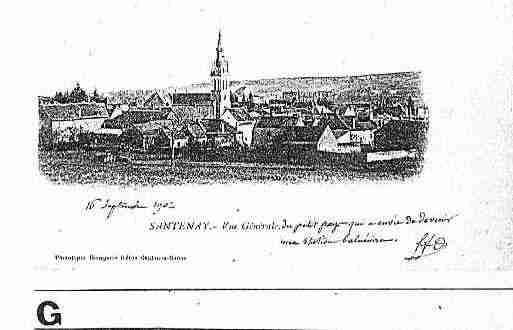 16 Septembre 1902
SANTENAY. - Vue Générale. du petit pays qui a envie de devenir
une station balnéaire.
Phototypie Bourgeois frères
G